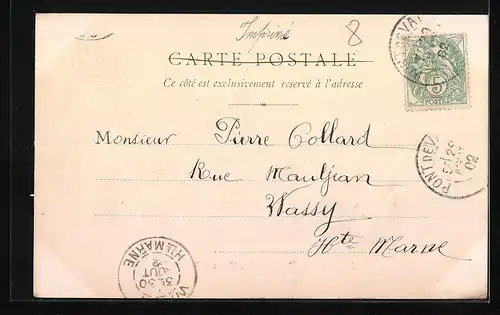 Imprimé
8
CARTE POSTALE
Ce côté est exclusivement réservé à l'adresse
5
POSTES
Monsieur Pierre Collard
Rue Mauljean
Wassy
Hte Marne
PONT DE VA
29
02
HTE MARNE
30
AOUT